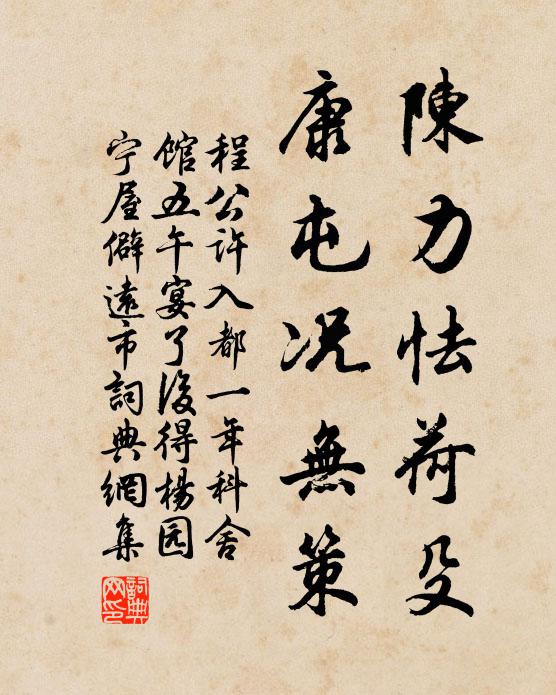 陳力怯荷殳
康屯況無策
程公許入都一年科舍
館五午宴了後得楊园
宁屋僻遠市詞典網集
詞典网印